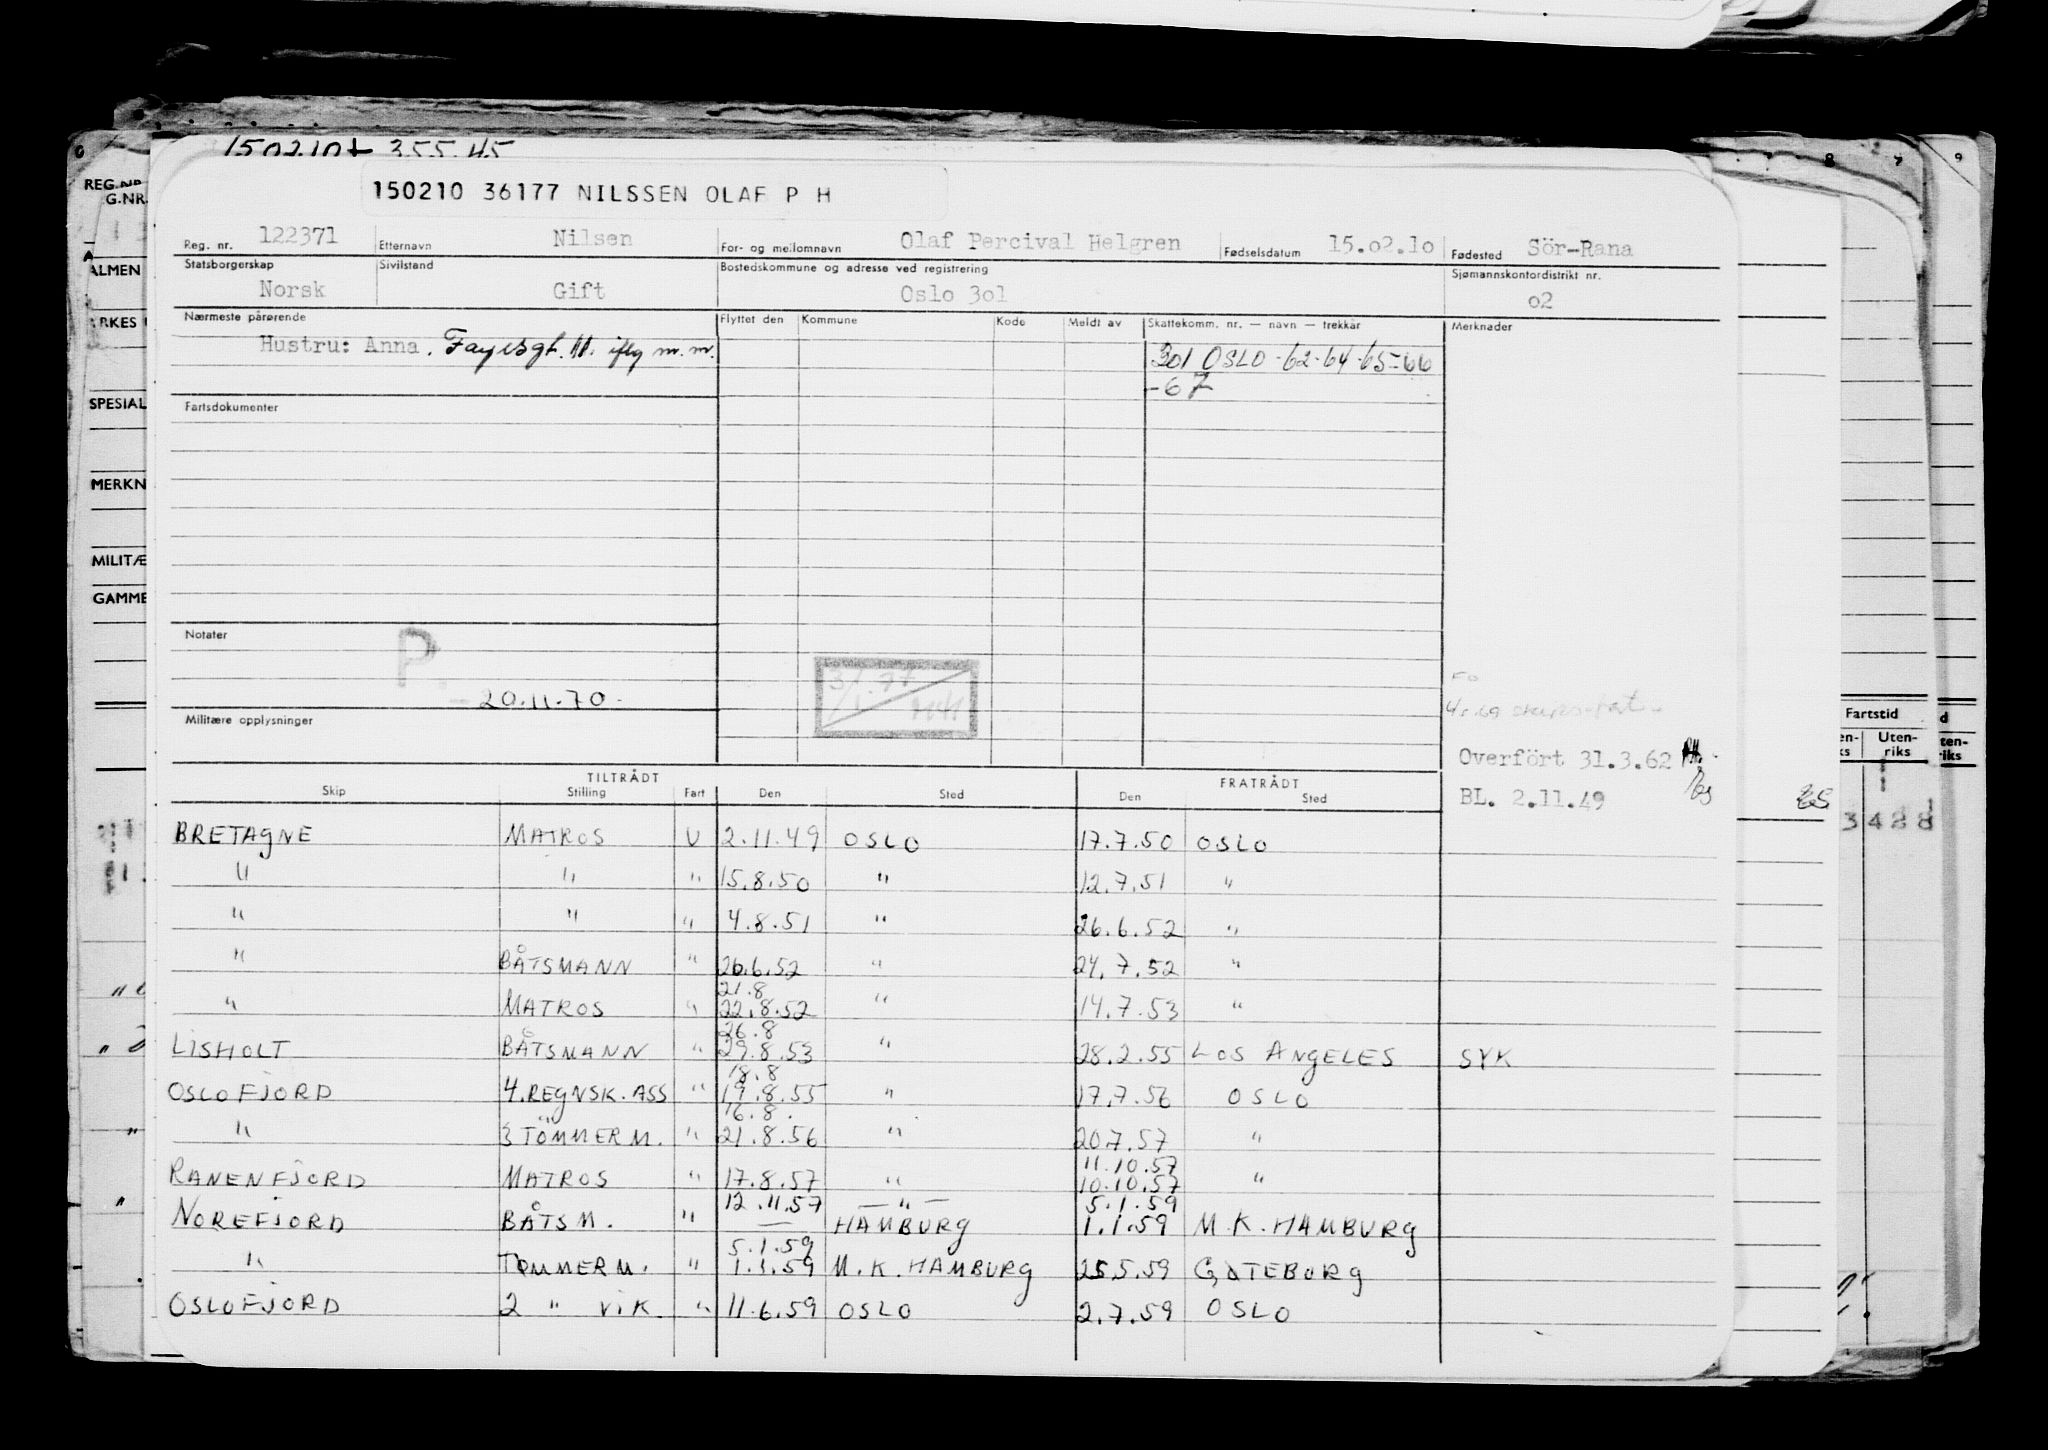 150210+ 355.45
150210 36177 NILSSEN OLAF P H
REG.NR.
G.NR.
Reg. nr. 122371 Etternavn Nilsen For- og mellomnavn Olaf Percival Helgren Fødselsdatum 15.02.10 Fødested Sör-Rana
Statsborgerskap Sivilstand Bostedskommune og adresse ved registrering Sjømannskontordistrikt nr.
Norsk Gift Oslo 301 02
Nærmeste pårørende Flyttet den Kommune Kode Meldt av Skattekomm. nr. — navn — trekkår Merknader
Hustru: Anna. Fayesgt. 11. iflg m.m.
301 OSLO -62-64-65-66
-67
Fartsdokumenter
SPESIAL
MERKN
MILITÆ
GAMME
Notater
P
- 20.11.70 -
3/1.77
Militære opplysninger
Overfört 31.3.62
BL. 2.11.49
Fartstid
Uten-
riks
3 4 2 8
TILTRÅDT FRATRÅDT
Skip Stilling Fart Den Sted Den Sted
BRETAGNE MATROS U 2.11.49 OSLO 17.7.50 OSLO
" " " 15.8.50 " 12.7.51 "
" " " 4.8.51 " 26.6.52 "
" BÅTSMANN " 26.6.52 " 24.7.52 "
21.8
" MATROS " 22.8.52 " 14.7.53 "
26.8
LISHOLT BÅTSMANN " 29.8.53 " 28.2.55 LOS ANGELES SYK
18.8
OSLOFJORD 4.REGNSK.ASS " 19.8.55 " 17.7.56 OSLO
16.8.
" 3 TÖMMERM. " 21.8.56 " 20.7.57 "
11.10.57
RANENFJORD MATROS " 17.8.57 " 10.10.57 "
12.11.57 — " — 5.1.59
NOREFJORD BÅTSM. " — HAMBURG 1.1.59 M.K. HAMBURG
5.1.59
" TØMMERM. " 1.1.59 M.K. HAMBURG 25.5.59 GØTEBORG
OSLOFJORD 2 " VIK " 11.6.59 OSLO 2.7.59 OSLO